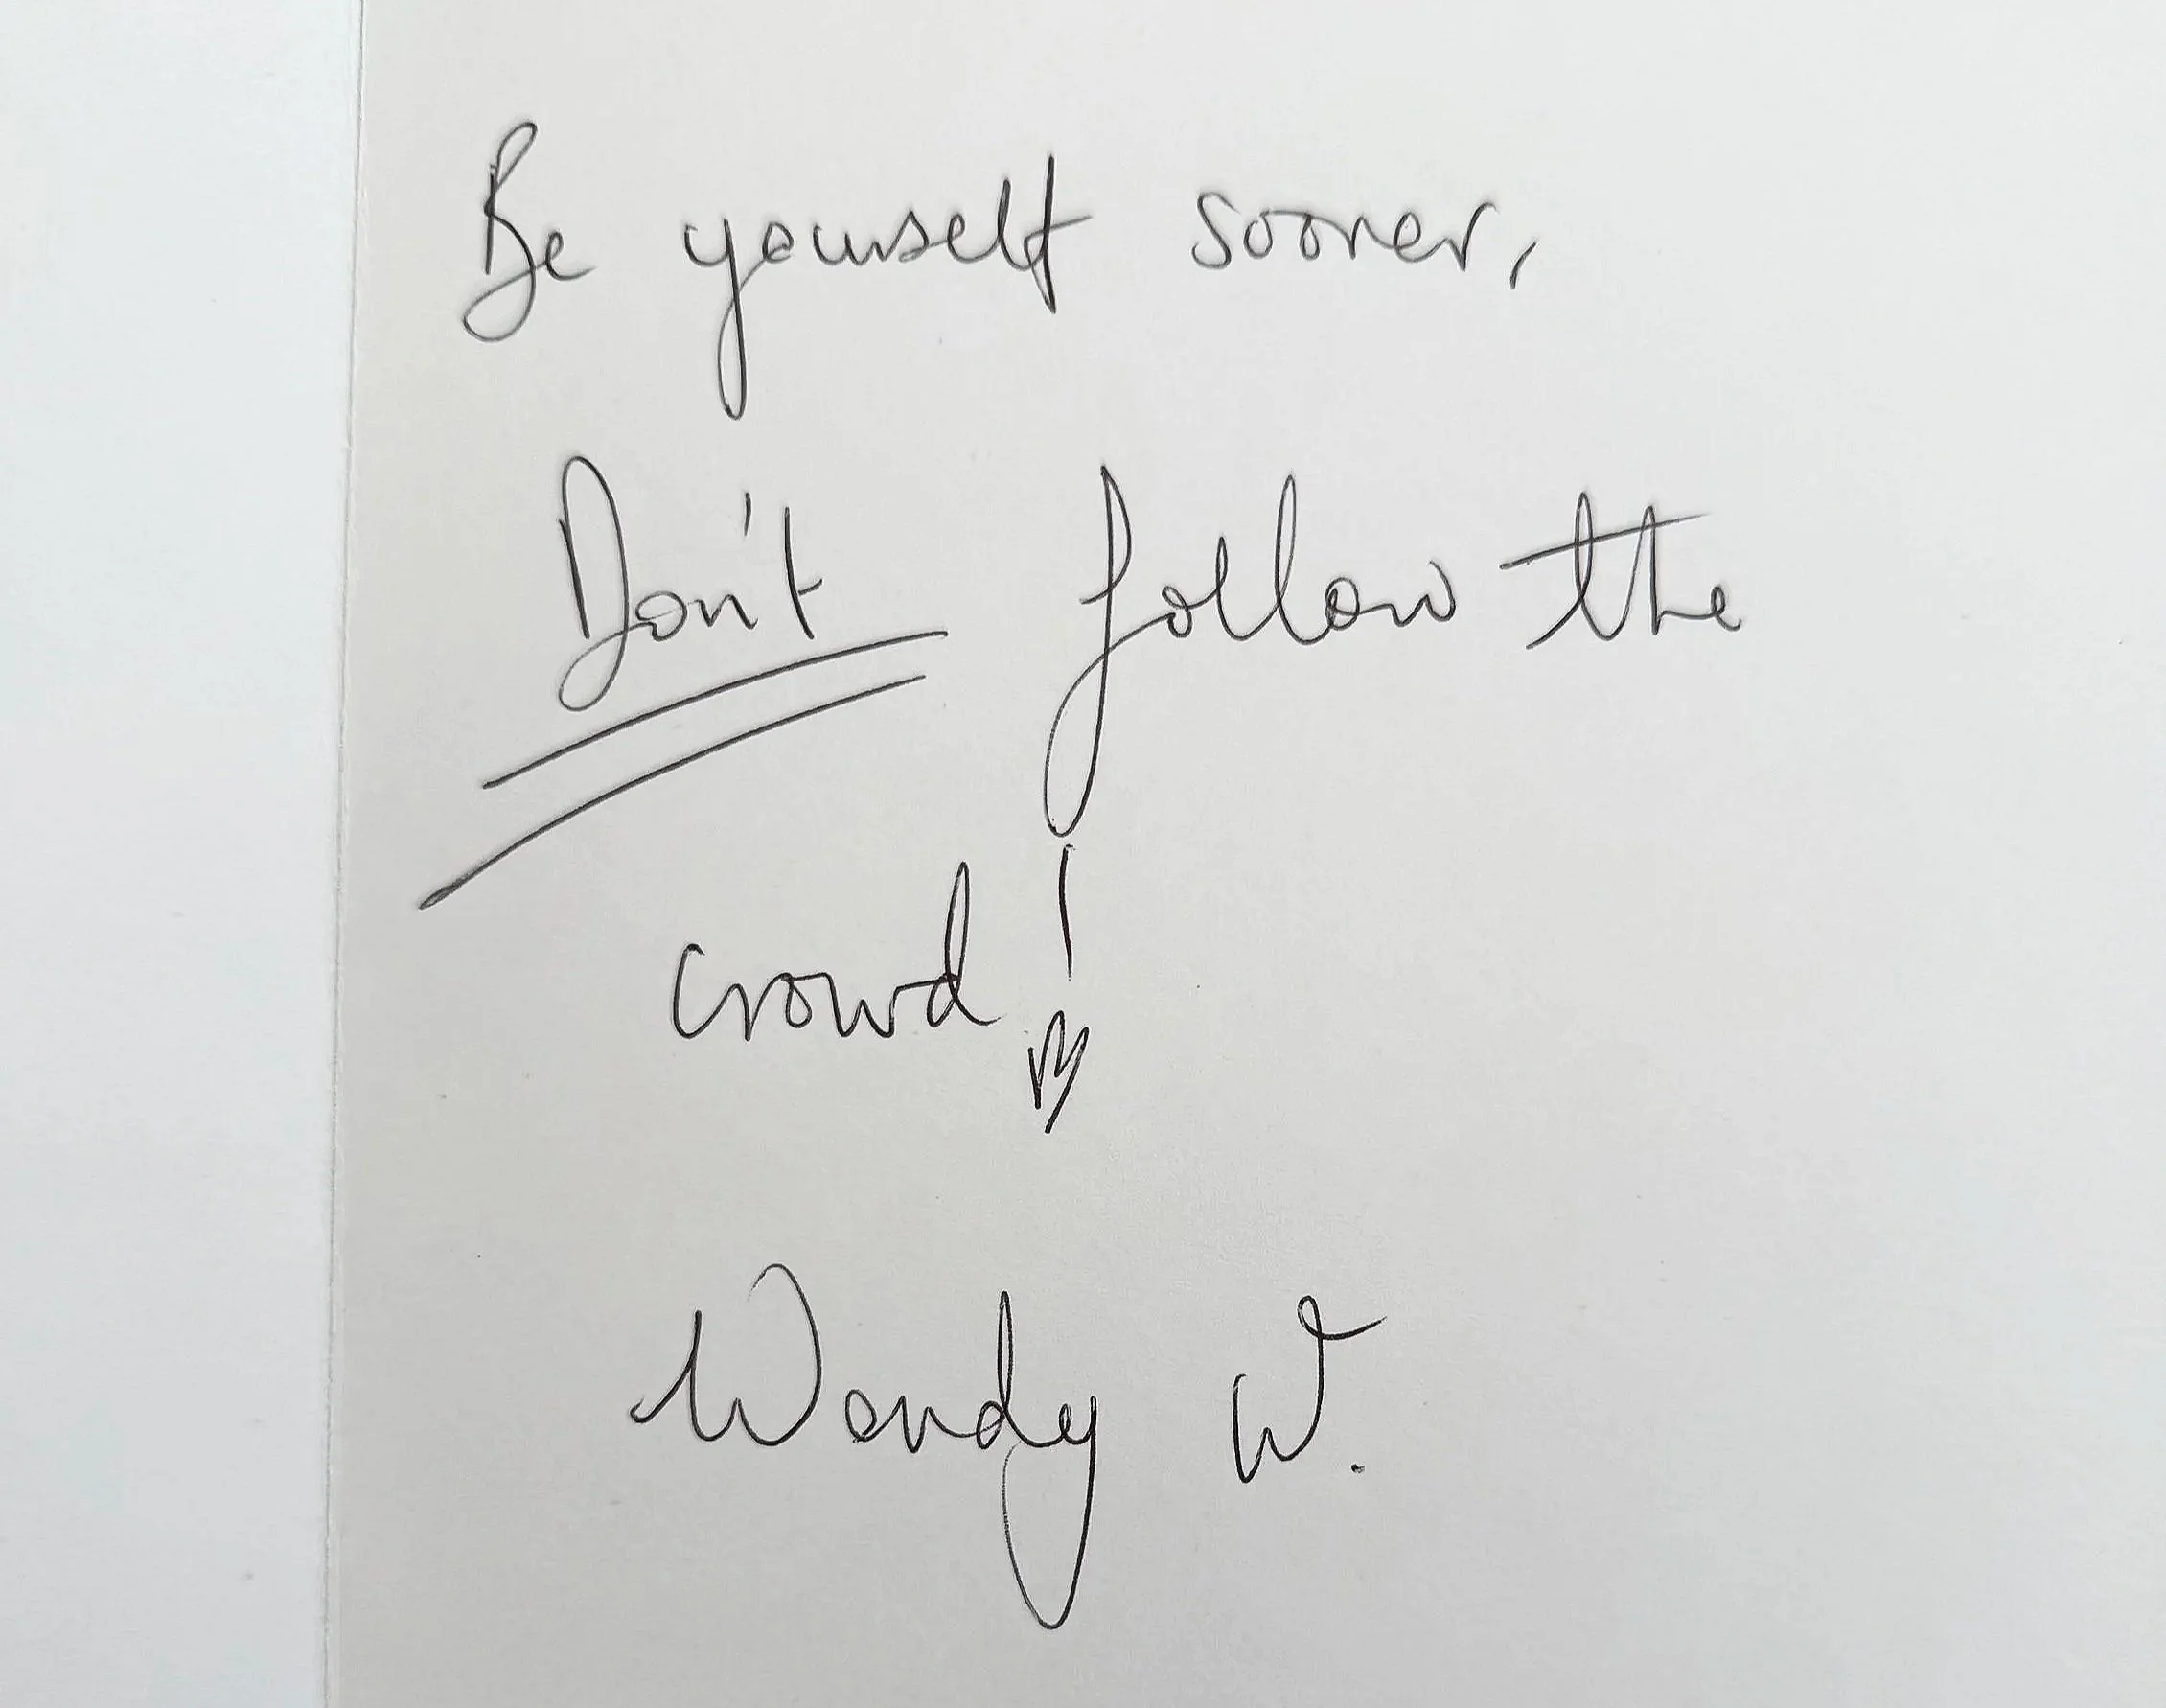 Be yourself sooner,
Don't follow the
crowd!
Wendy W.